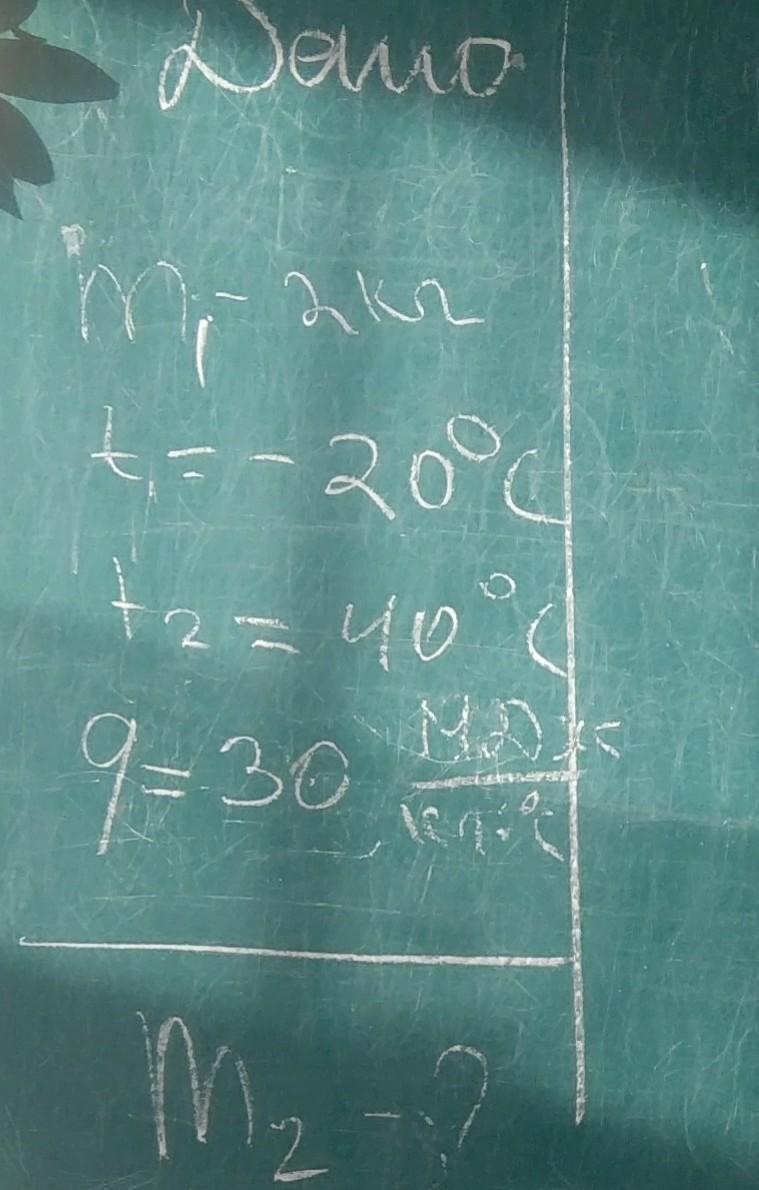 Дано
m₁ - 2кг
t₁ = - 20°C
t₂ = 40°C
q = 30 МДж
кг·°C
m₂ - ?